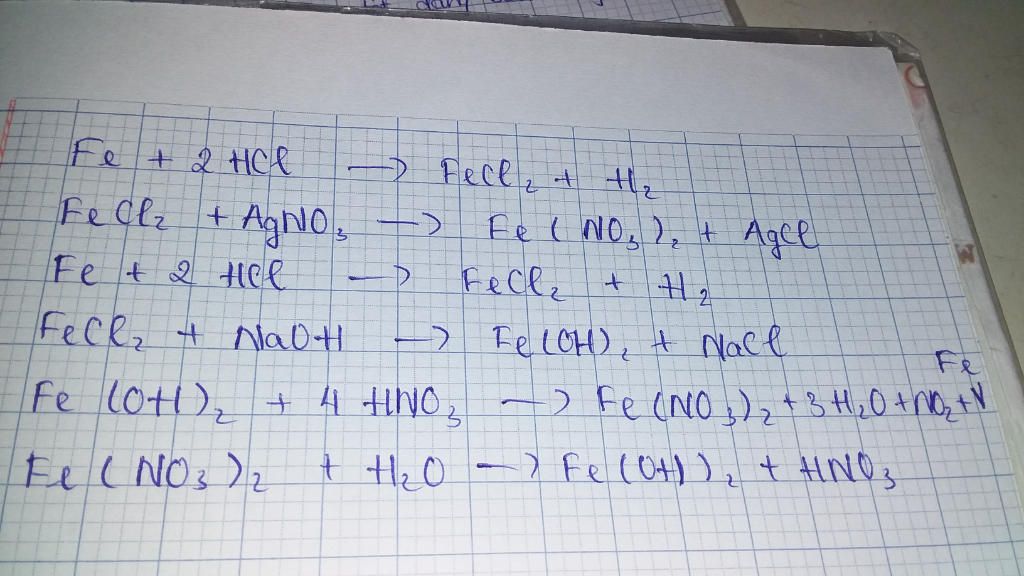 Fe + 2 HCl → FeCl₂ + H₂
FeCl₂ + AgNO₃ → Fe(NO₃)₂ + AgCl
Fe + 2 HCl → FeCl₂ + H₂
FeCl₂ + NaOH → Fe(OH)₂ + NaCl
Fe
Fe(OH)₂ + 4 HNO₃ → Fe(NO₃)₂ + 3H₂O + NO₂ +
Fe(NO₃)₂ + H₂O → Fe(OH)₂ + HNO₃